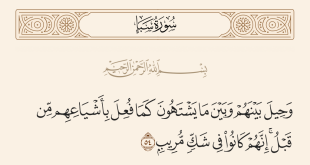 سُورَةُ سَبَإٍ
بِسْمِ اللَّهِ الرَّحْمَٰنِ الرَّحِيمِ
وَحِيلَ بَيْنَهُمْ وَبَيْنَ مَا يَشْتَهُونَ كَمَا فُعِلَ بِأَشْيَاعِهِم مِّن
قَبْلُ ۚ إِنَّهُمْ كَانُوا۟ فِى شَكٍّ مُّرِيبٍۭ ٥٤